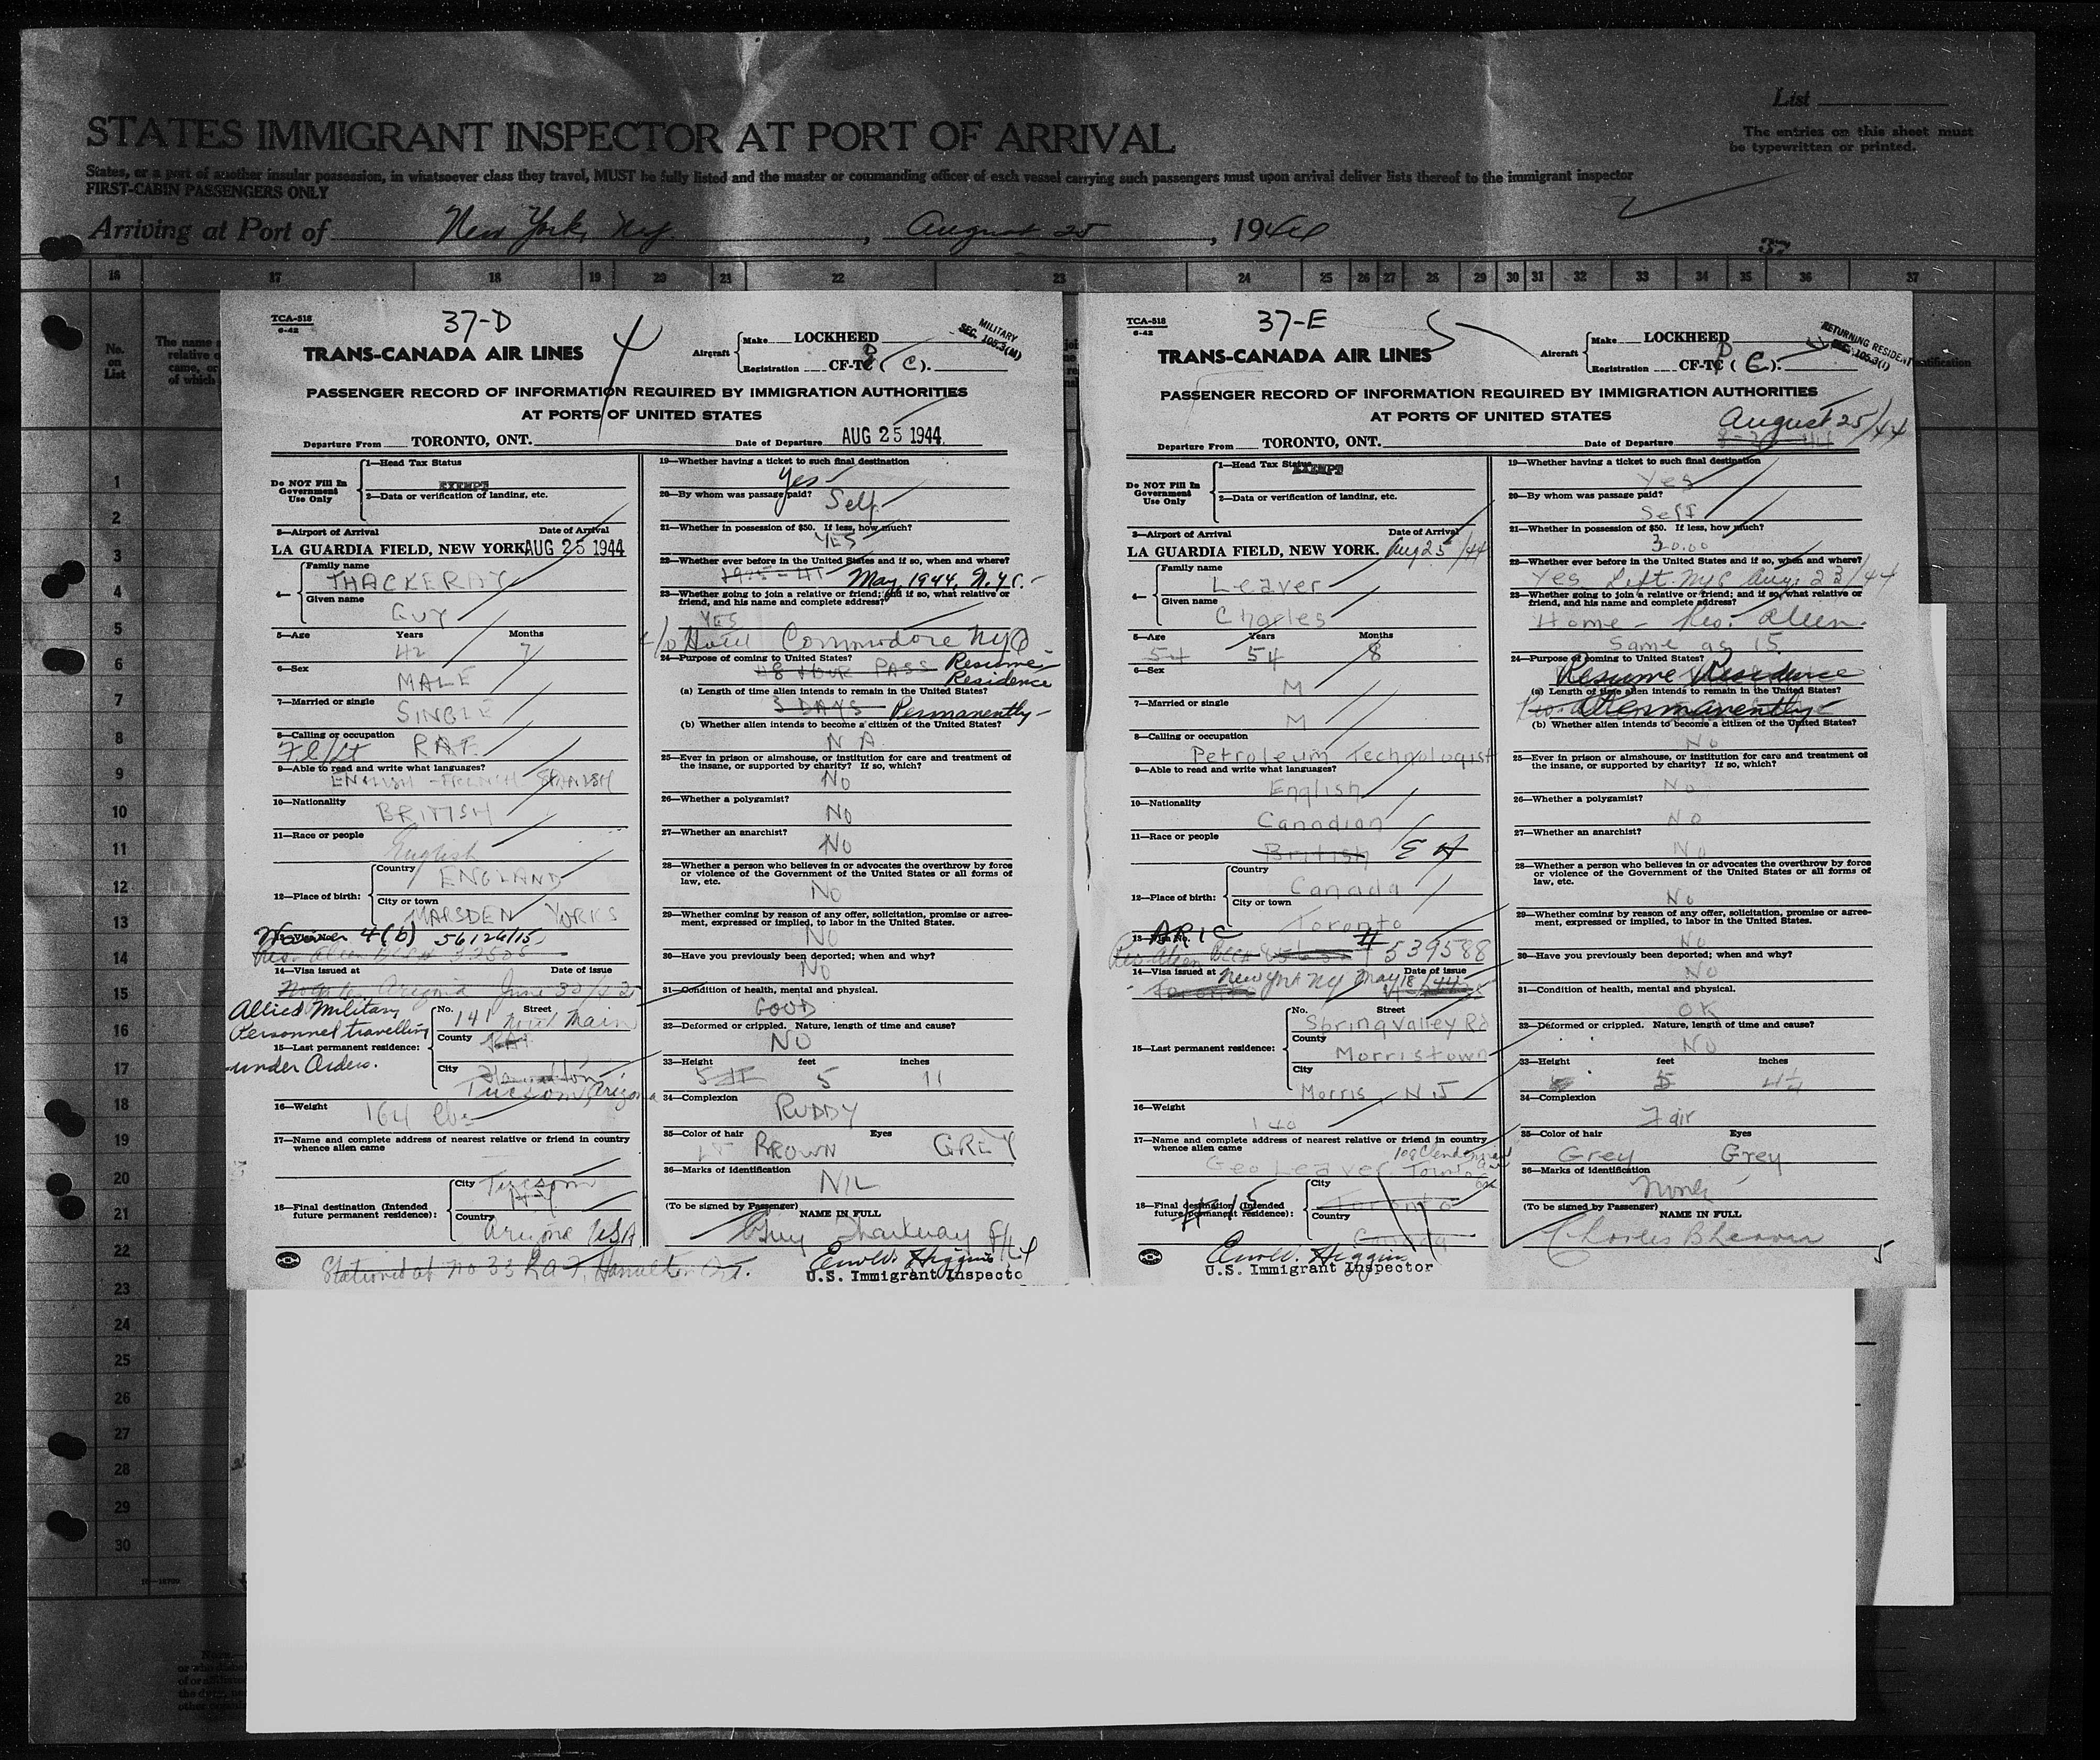 List
STATES IMMIGRANT INSPECTOR AT PORT OF ARRIVAL
The entries on this sheet must
be typewritten or printed.
States, or a port of another insular possession, in whatsoever class they travel, MUST be fully listed and the master or commanding officer of each vessel carrying such passengers must upon arrival deliver lists thereof to the immigrant inspector
FIRST-CABIN PASSENGERS ONLY
Arriving at Port of New York, N.Y., August 25, 1944
37
16 17 18 19 20 21 22 23 24 25 26 27 28 29 30 31 32 33 34 35 36 37
No. on List
1
2
3
4
5
6
7
8
9
10
11
12
13
14
15
16
17
18
19
20
21
22
23
24
25
26
27
28
29
30
TCA-518
6-42
37-D
4
TRANS-CANADA AIR LINES
Aircraft
Make LOCKHEED
Registration CF-TC (C).
MILITARY
SEC. 105.3(M)
PASSENGER RECORD OF INFORMATION REQUIRED BY IMMIGRATION AUTHORITIES
AT PORTS OF UNITED STATES
Departure From TORONTO, ONT. Date of Departure AUG 25 1944
Do NOT Fill In
Government
Use Only
1—Head Tax Status
EXEMPT
2—Data or verification of landing, etc.
3—Airport of Arrival Date of Arrival
LA GUARDIA FIELD, NEW YORK. AUG 25 1944
4—
Family name
THACKERAY
Given name
GUY
5—Age Years Months
42 7
6—Sex
MALE
7—Married or single
SINGLE
8—Calling or occupation
Fl/Lt RAF.
9—Able to read and write what languages?
ENGLISH - FRENCH SPANISH
10—Nationality
BRITISH
11—Race or people
English
12—Place of birth:
Country
ENGLAND
City or town
MARSDEN YORKS
13—Visa No.
Waiver 4(b) 56126/15
14—Visa issued at Date of issue
Nogales Arizona June 30
Allied Military
Personnel travelling
under Orders.
15—Last permanent residence:
No. Street
141 North Main
County
City
Hamilton
Tucson Arizona
16—Weight
164 lbs
17—Name and complete address of nearest relative or friend in country
whence alien came
18—Final destination (Intended
future permanent residence):
City
Tucson
Country
Arizona USA
Stationed at No 33 RAF, Hamilton Ont.
19—Whether having a ticket to such final destination
Yes
20—By whom was passage paid?
Self
21—Whether in possession of $50. If less, how much?
YES
22—Whether ever before in the United States and if so, when and where?
May 1944. N.Y.C.
23—Whether going to join a relative or friend; and if so, what relative or
friend, and his name and complete address?
YES
c/o Hotel Commodore NYC
24—Purpose of coming to United States?
48 HOUR PASS Resume
Residence
(a) Length of time alien intends to remain in the United States?
3 DAYS Permanently
(b) Whether alien intends to become a citizen of the United States?
N A
25—Ever in prison or almshouse, or institution for care and treatment of
the insane, or supported by charity? If so, which?
NO
26—Whether a polygamist?
NO
27—Whether an anarchist?
NO
28—Whether a person who believes in or advocates the overthrow by force
or violence of the Government of the United States or all forms of
law, etc.
NO
29—Whether coming by reason of any offer, solicitation, promise or agree-
ment, expressed or implied, to labor in the United States.
NO
30—Have you previously been deported; when and why?
NO
31—Condition of health, mental and physical.
GOOD
32—Deformed or crippled. Nature, length of time and cause?
NO
33—Height feet inches
5 11
34—Complexion
RUDDY
35—Color of hair Eyes
BROWN GREY
36—Marks of identification
NIL
(To be signed by Passenger)
NAME IN FULL
Guy Thackeray F/Lt
U.S. Immigrant Inspecto
TCA-518
6-42
37-E
5
TRANS-CANADA AIR LINES
Aircraft
Make LOCKHEED
Registration CF-TC ( ).
RETURNING RESIDENT
SEC. 105.3(I)
PASSENGER RECORD OF INFORMATION REQUIRED BY IMMIGRATION AUTHORITIES
AT PORTS OF UNITED STATES
August 25/44
Departure From TORONTO, ONT. Date of Departure
Do NOT Fill In
Government
Use Only
1—Head Tax Status
EXEMPT
2—Data or verification of landing, etc.
3—Airport of Arrival Date of Arrival
LA GUARDIA FIELD, NEW YORK. Aug 25/44
4—
Family name
Leaver
Given name
Charles
5—Age Years Months
54 54 8
6—Sex
M
7—Married or single
M
8—Calling or occupation
Petroleum Technologist
9—Able to read and write what languages?
English
10—Nationality
Canadian
11—Race or people
British
12—Place of birth:
Country
Canada
City or town
Toronto
13—Visa No.
ARIC # 539588
14—Visa issued at Date of issue
Toronto New York NY May 18/44
15—Last permanent residence:
No. Street
Spring Valley Rd
County
Morristown
City
Morris, N J
16—Weight
140
17—Name and complete address of nearest relative or friend in country
whence alien came
Geo Leaver Toronto
18—Final destination (Intended
future permanent residence):
# 15
City
Toronto
Country
Canada
U.S. Immigrant Inspector
19—Whether having a ticket to such final destination
Yes
20—By whom was passage paid?
Self
21—Whether in possession of $50. If less, how much?
30.00
22—Whether ever before in the United States and if so, when and where?
Yes Left NYC Aug. 23/44
23—Whether going to join a relative or friend; and if so, what relative or
friend, and his name and complete address?
Home - Res. Alien.
Same as 15
24—Purpose of coming to United States?
Resume Residence
(a) Length of time alien intends to remain in the United States?
Permanently
(b) Whether alien intends to become a citizen of the United States?
No
25—Ever in prison or almshouse, or institution for care and treatment of
the insane, or supported by charity? If so, which?
No
26—Whether a polygamist?
No
27—Whether an anarchist?
No
28—Whether a person who believes in or advocates the overthrow by force
or violence of the Government of the United States or all forms of
law, etc.
No
29—Whether coming by reason of any offer, solicitation, promise or agree-
ment, expressed or implied, to labor in the United States.
No
30—Have you previously been deported; when and why?
No
31—Condition of health, mental and physical.
OK
32—Deformed or crippled. Nature, length of time and cause?
NO
33—Height feet inches
5 4½
34—Complexion
Fair
35—Color of hair Eyes
Grey Grey
36—Marks of identification
None
(To be signed by Passenger)
NAME IN FULL
Charles B Leaver
5